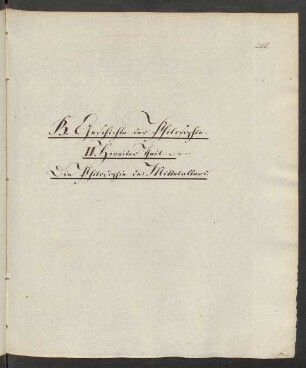 B. Geschichte der Philosophie.
II. Zweiter Theil.
Die Philosophie des Mittelalters.